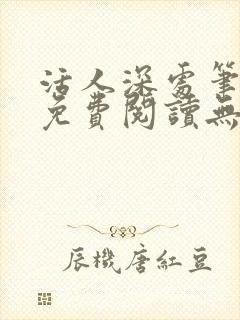 活人深處筆
免費閱讀無
辰機唐紅豆